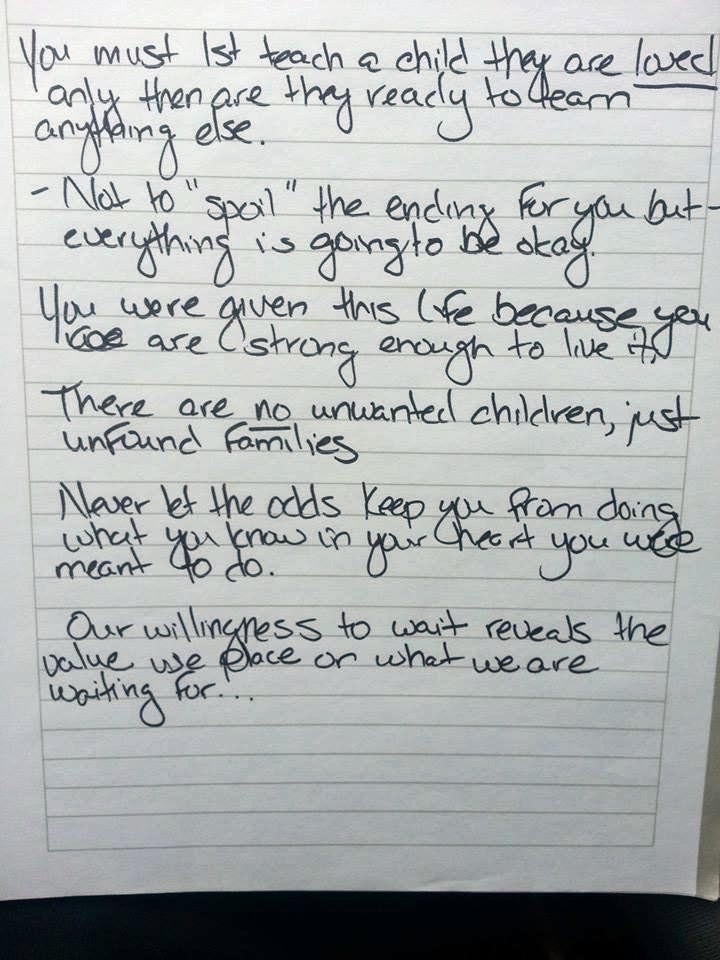 You must 1st teach a child they are loved
only then are they ready to learn
anything else.
- Not to "spoil" the ending for you but -
everything is going to be okay.
You were given this life because you
are strong enough to live it.
There are no unwanted children, just
unfound families
Never let the odds keep you from doing
what you know in your heart you were
meant to do.
Our willingness to wait reveals the
value we place on what we are
waiting for...